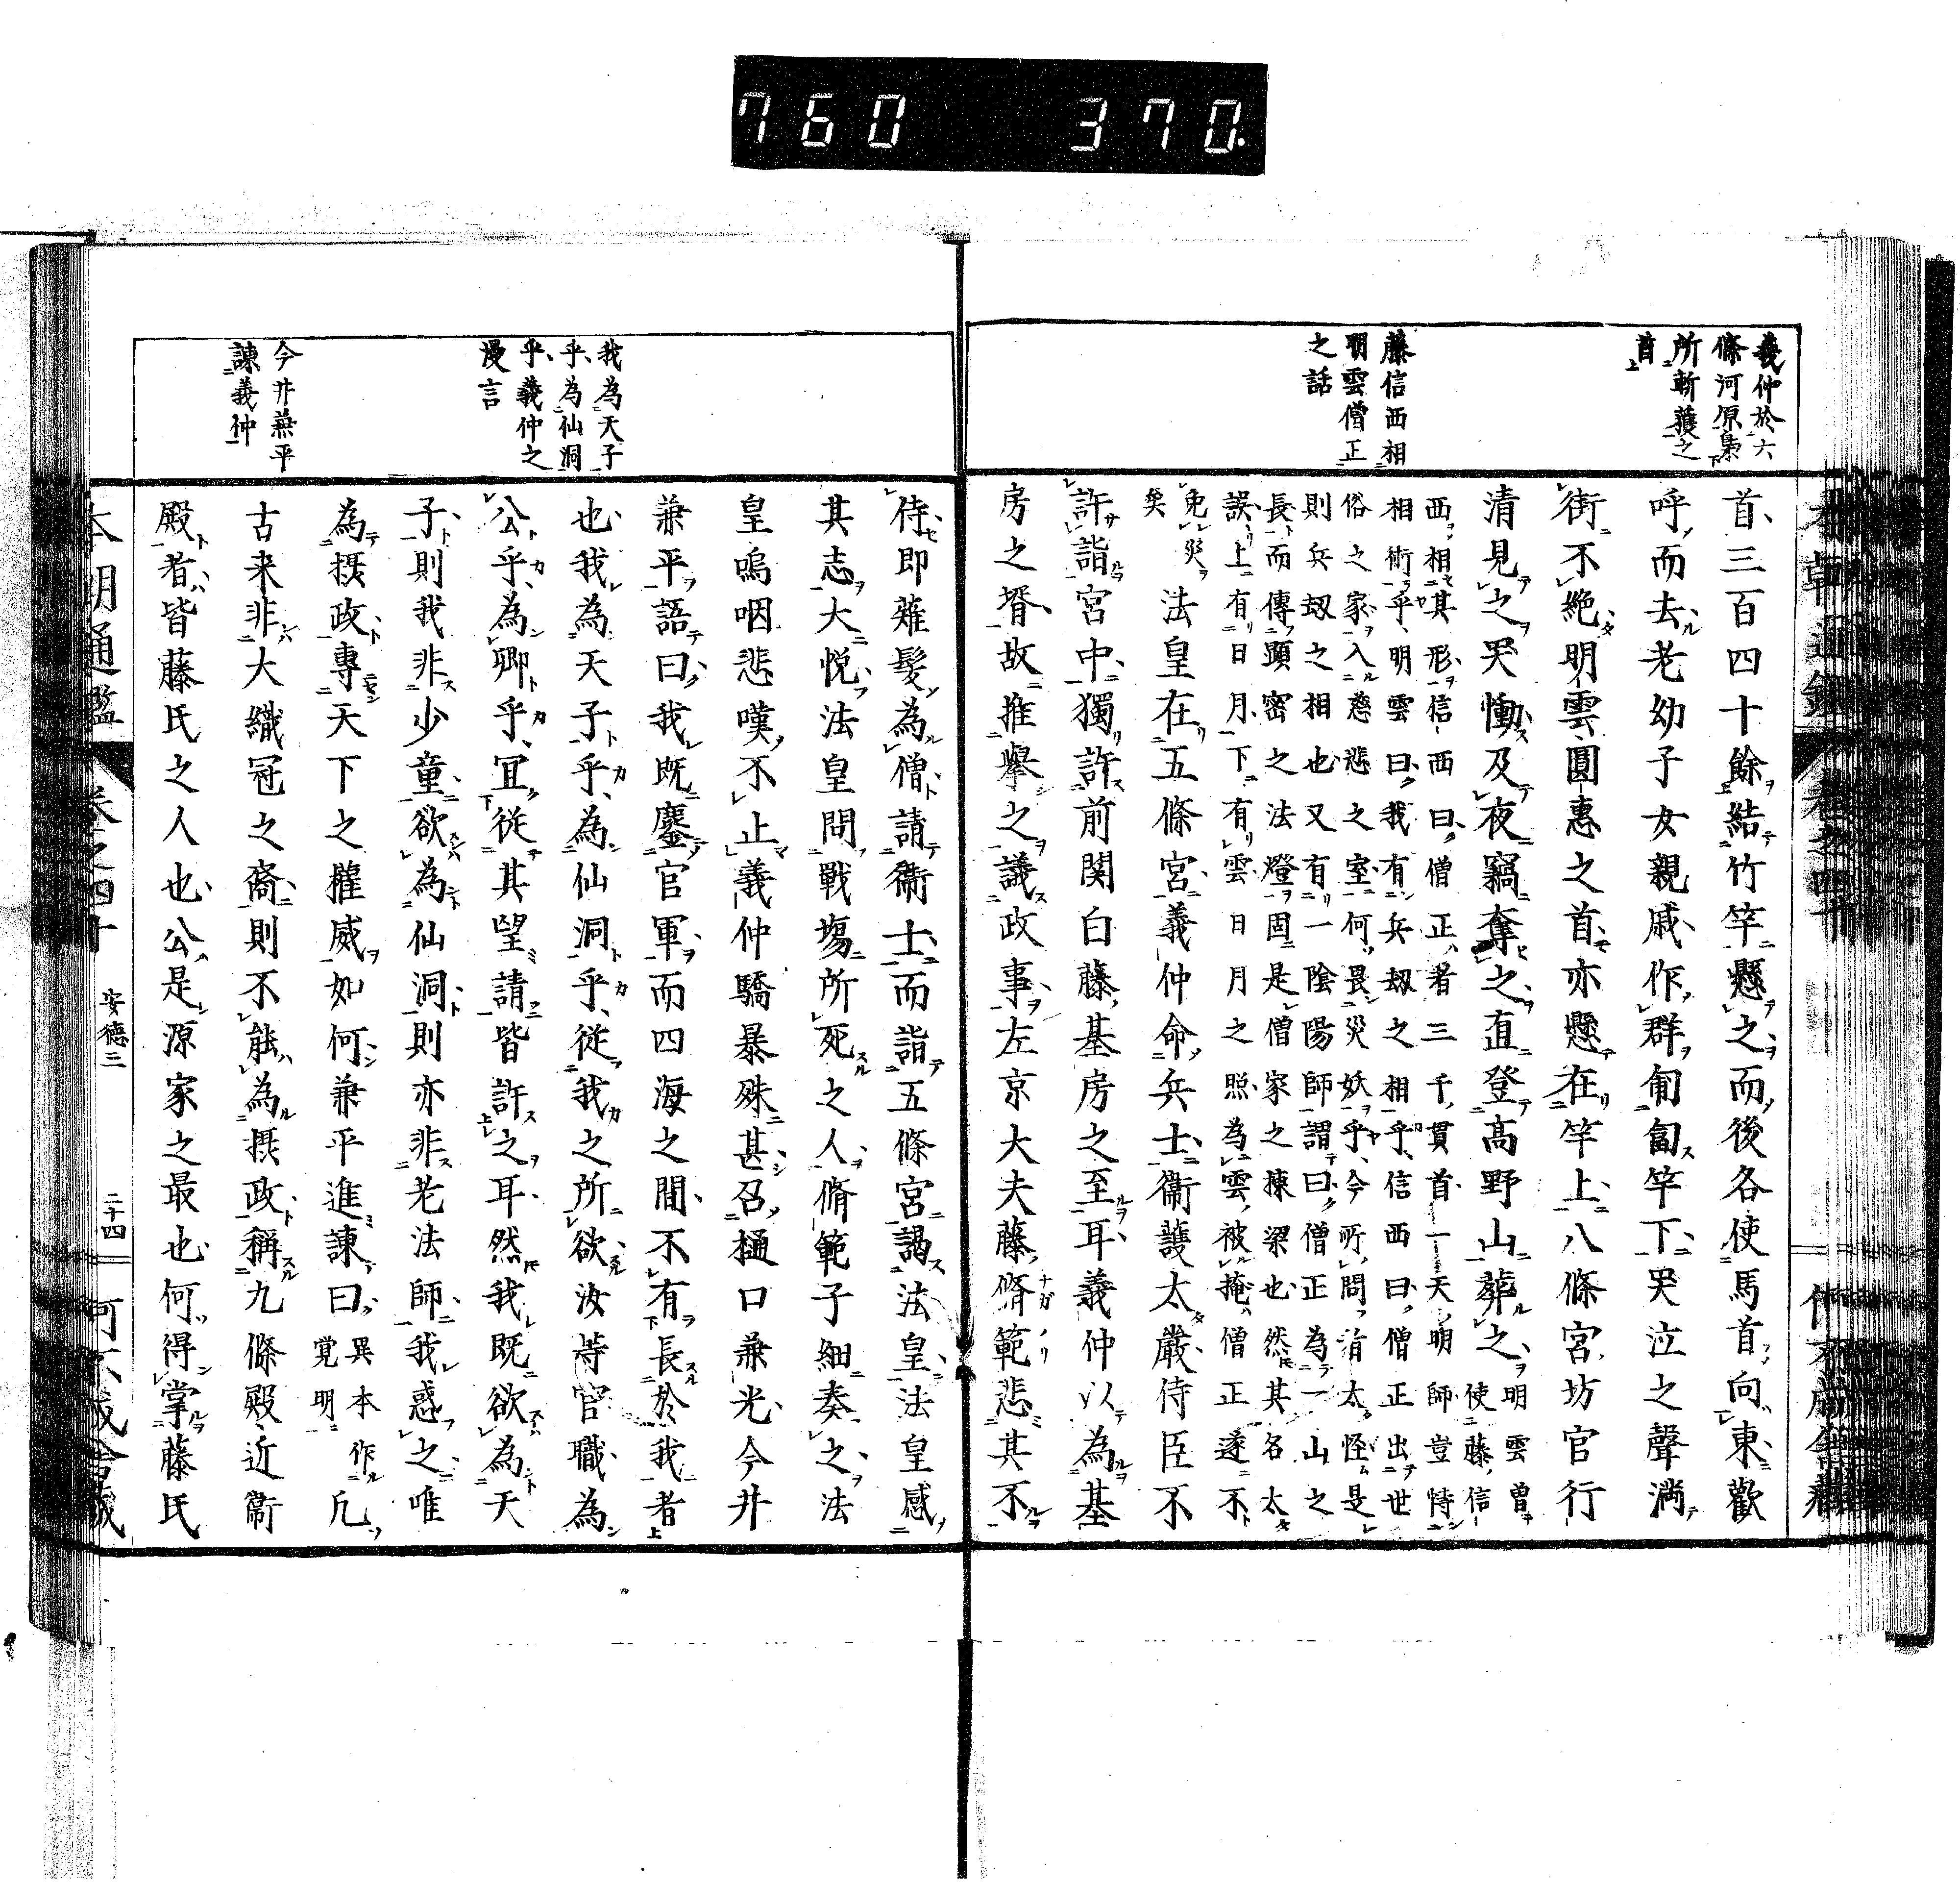 760 370.
義仲於六
條河原梟
所斬獲之
首
藤信西相
明雲僧正
之話
首三百四十餘結竹竿懸之而後各使馬首向東歡
呼而去老幼子女親戚作群匍匐竿下哭泣之聲満
街不絶明雲圓惠之首亦懸在竿上八條宮坊官行
清見之哭慟及夜竊奪之直登高野山葬之明雲曽
使藤信
西相其形信西曰僧正者三千貫首一天明師豈恃
相術乎明雲曰我有兵刼之相乎信西曰僧正出世
俗之家入慈悲之室何畏災妖乎今所問有太怪是
則兵刼之相也又有一陰陽師謂曰僧正為一山之
長而傳顕密之法燈固是僧家之棟梁也然其名太
誤上有日月下有雲日月之照為雲被掩僧正遂不
免災
矣
法皇在五條宮義仲命兵士衞護太嚴侍臣不
許詣宮中獨許前関白藤基房之至耳義仲以為基
房之壻故推擧之議政事左京大夫藤脩範悲其不
我為天子
乎為仙洞
乎義仲之
慢言
今井兼平
諫義仲
侍即薙髮為僧請衞士而詣五條宮謁法皇法皇感
其志大悦法皇問戰塲所死之人脩範子細奏之法
皇嗚咽悲嘆不止義仲驕暴殊甚召樋口兼光今井
兼平語曰我既鏖官軍而四海之間不有長於我者
也我為天子乎為仙洞乎從我之所欲汝等官職為
公乎為卿乎冝從其望請皆許之耳然我既欲為天
子則我非少童欲為仙洞則亦非老法師我惑之唯
為摂政專天下之權威如何兼平進諫曰異本作
覚明凢
古来非大織冠之裔則不能為摂政稱九條殿近衞
殿者皆藤氏之人也公是源家之最也何得掌藤氏
本朝通鑑 卷之四十 安德二 二十四